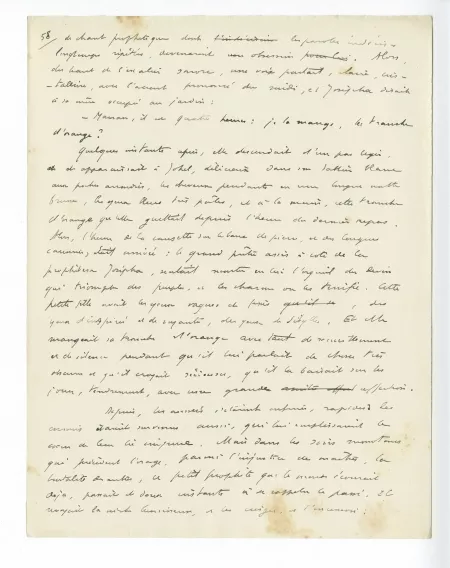 58/ de chant prophétique dont les paroles
longtemps répétées, devenaient une obsession Alors,
du haut de l'escalier sonore, une voix partait, claire, cris-
-talline, avec l'accent prononcé des midis, et Josépha disait
à sa mère occupée au jardin :
- Maman, il est quatre heures : je la mange, la tranche
d'orange ?
Quelques instants après, elle descendait d'un pas léger
et apparaissait à délicieuse dans son tablier blanc
aux poches arrondies, les cheveux pendants en une longue natte
brune, les yeux bleus très pâles, et à la main, cette tranche
d'orange qu'elle guettait depuis l'heure du dernier repas.
Alors, l'heure de la causette sur le banc de pierre, et des longues
était arrivée : le grand prêtre assis à côté de la
prophétesse Josépha, sentait monter en lui l'esprit des devins
qui triomphe des peuples, et les charme ou les terrifie. Cette
petite fille avait les yeux vagues et des
yeux d'inspirée et de voyante, des yeux de Et elle
mangeait sa tranche d'orange avec tant de recueillement
et de silence pendant qu'il lui parlait de choses très
obscures et qu'il croyait sérieuses, qu'il la baisait sur les
joues, tendrement, avec une grande affection.
Depuis, les années s'étaient enfuies, rapides, les
ennuis étaient survenus aussi, qui lui emplissaient le
cœur de leur Mais dans les soirs
qui précèdent l'orage, parmi l'injustice des maîtres, la
brutalité des autres, ce petit prophète que le monde écœurait
déjà, passait de doux instants à se rappeler le passé. Il
revoyait la